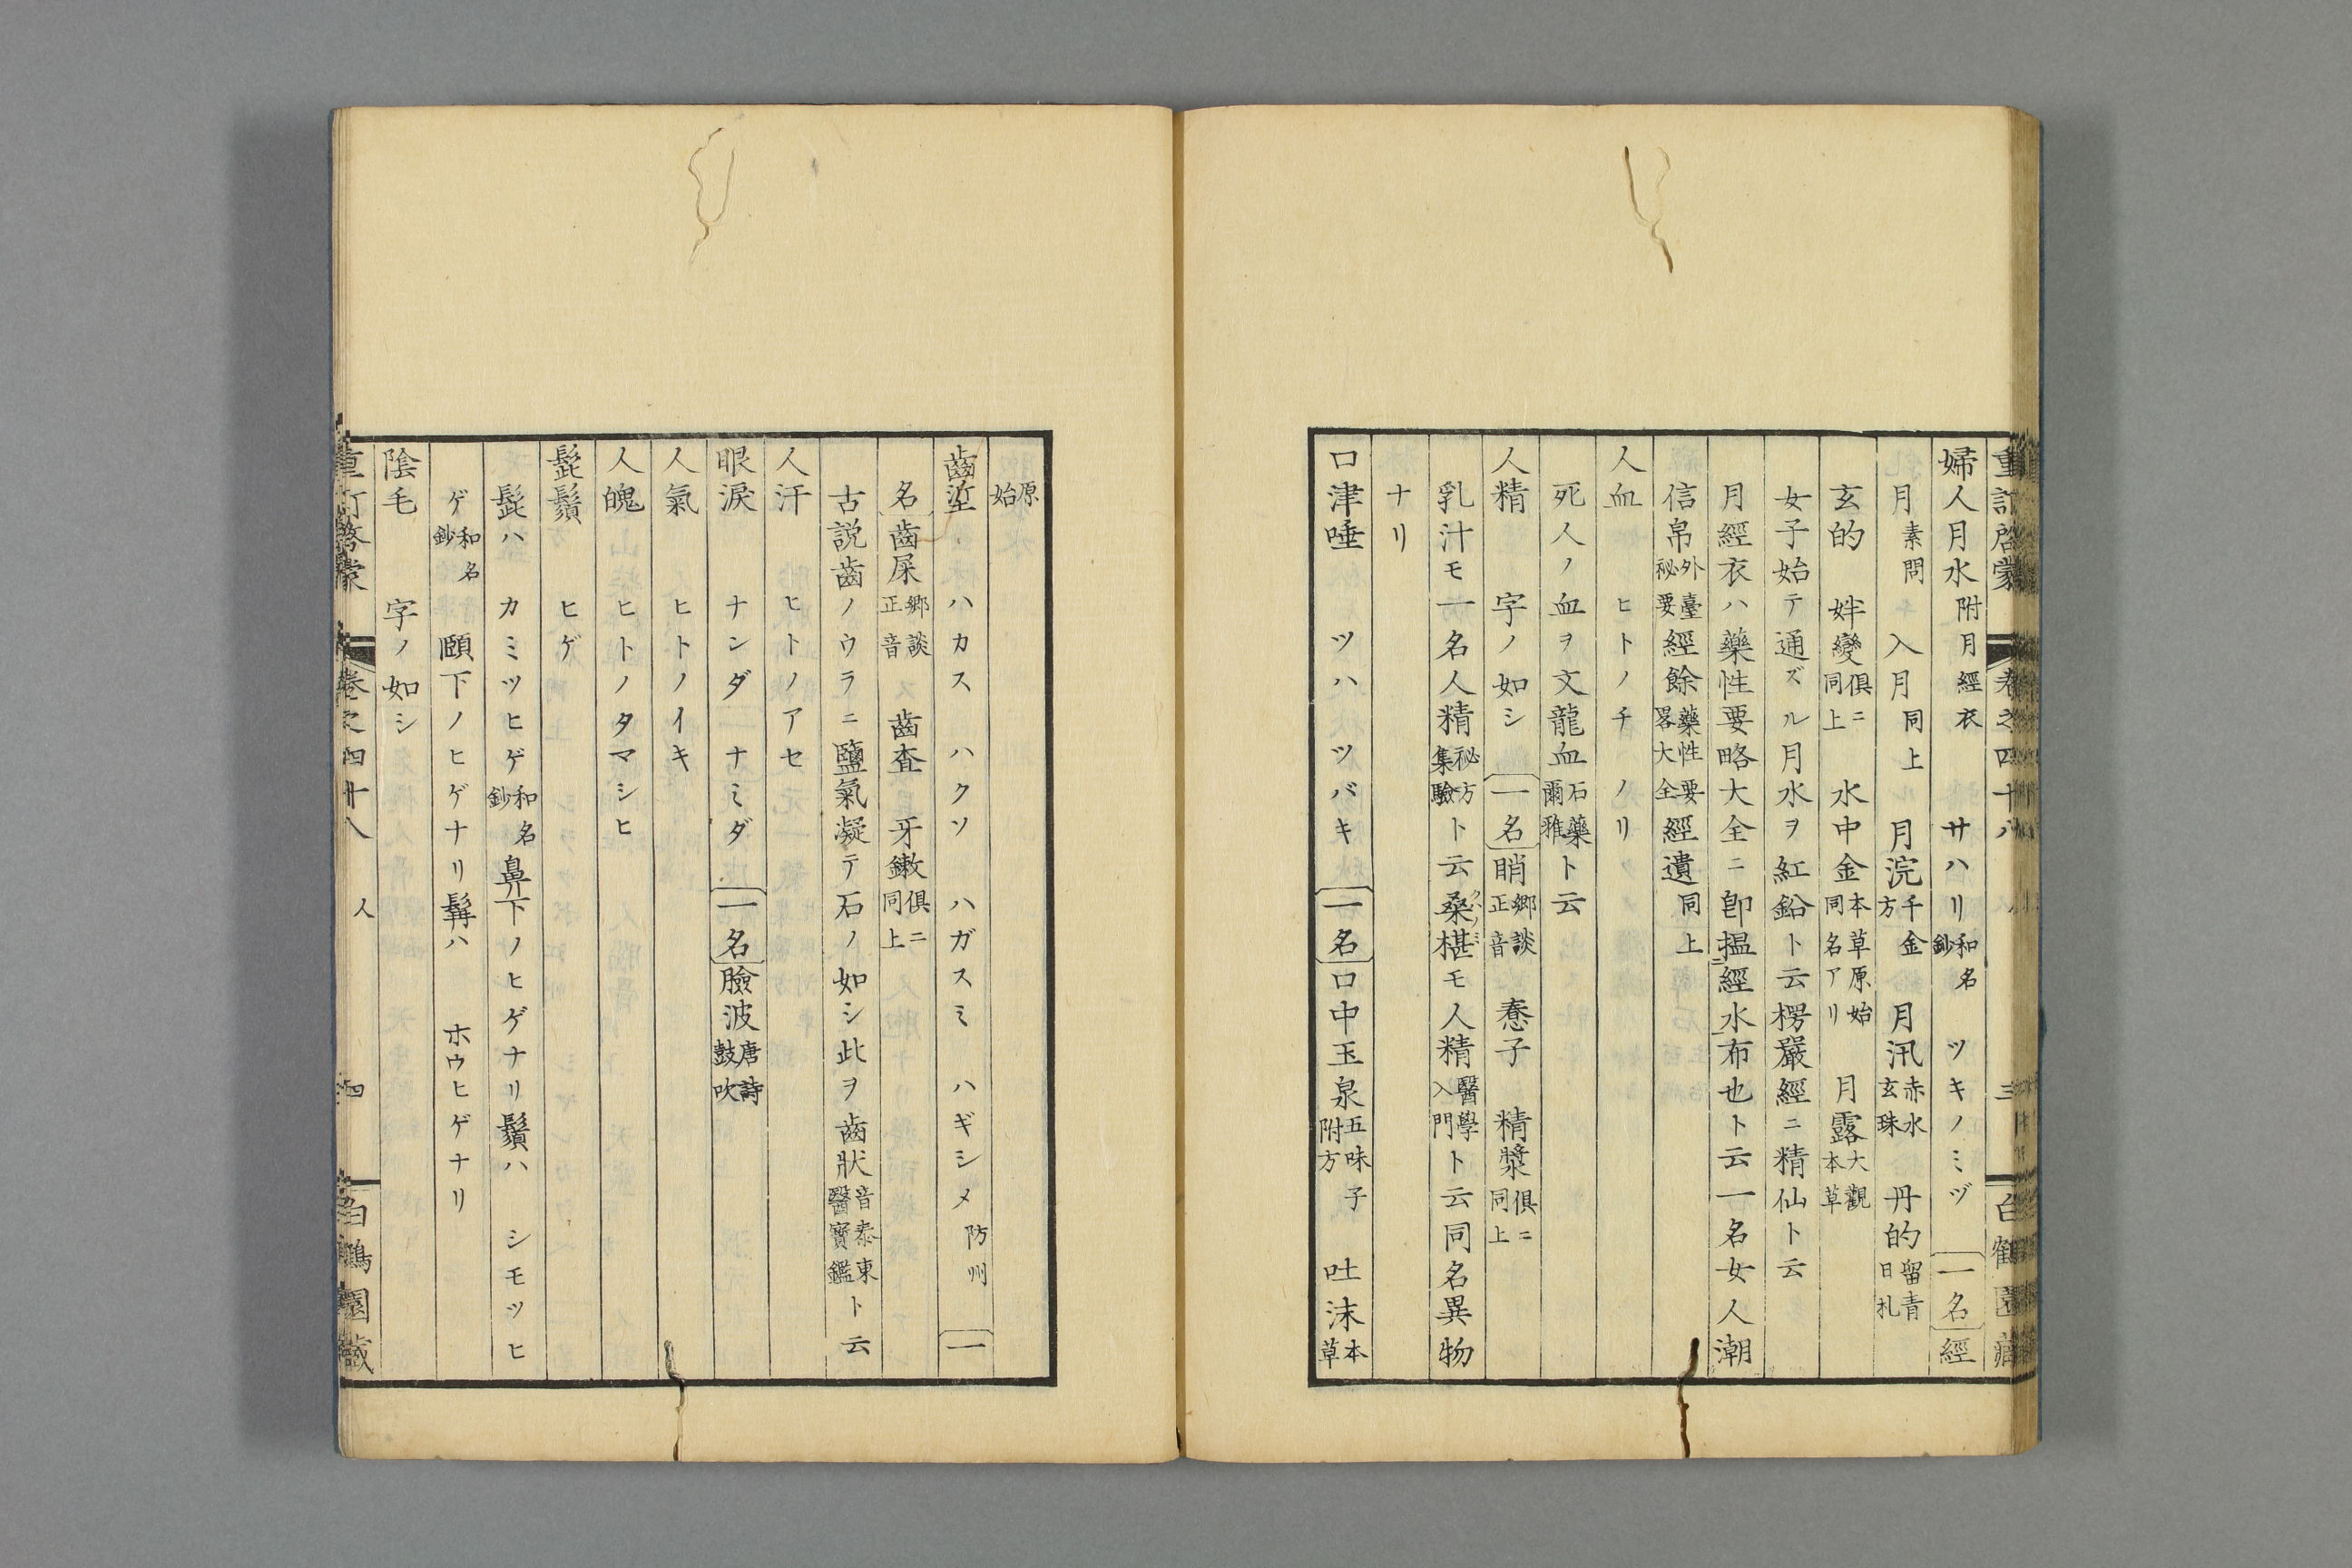 重訂啓蒙 卷之四十八 人 三 白鶴園藏
婦人月水 附月經衣 サハリ 和名鈔 ツキノミヅ 一名 經
月 素問 入月 同上 月浣 千金方 月汛 赤水玄珠 丹的 留青日札
玄的 姅變 俱ニ同上 水中金 本草原始同名アリ 月露 大觀本草
女子始テ通ズル月水ヲ紅鉛ト云楞嚴經ニ精仙ト云
月經衣ハ藥性要略大全ニ卽搵經水布也ト云一名女人潮
信帛 外臺祕要 經餘 藥性要畧大全 經遺 同上
人血 ヒトノチ ノリ
死人ノ血ヲ文龍血 石藥爾雅 ト云
人精 字ノ如シ 一名 䏴 鄉談正音 惷子 精漿 俱ニ同上
乳汁モ一名人精 祕方集驗 ト云桑椹モ人精 醫學入門 ト云同名異物
ナリ
口津唾 ツハ ツバキ 一名 口中玉泉 五味子附方 吐沫 本草
原始
齒垽 ハカス ハクソ ハガスミ ハギシメ 防州 一
名 齒屎 鄉談正音 齒査 牙鏉 俱ニ同上
古説齒ノウラニ鹽氣凝テ石ノ如シ此ヲ齒狀 音泰東醫寶鑑 ト云
人汗 ヒトノアセ
眼淚 ナンダ ナミダ 一名 臉波 唐詩鼓吹
人氣 ヒトノイキ
人魄 ヒトノタマシヒ
髭鬚 ヒゲ
髭ハ カミツヒゲ 和名鈔 鼻下ノヒゲナリ鬚ハ シモツヒ
ゲ 和名鈔 頤下ノヒゲナリ髯ハ ホウヒゲナリ
陰毛 字ノ如シ
重訂啓蒙 卷之四十八 人 四 白鶴園藏